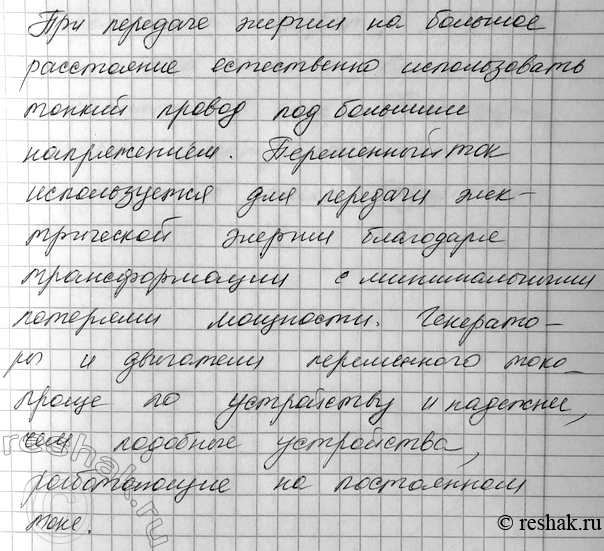 При передаче энергии на большое
расстояние естественно использовать
тонкий провод под большим
напряжением. Переменный ток
используется для передачи элек-
трической энергии благодаря
трансформации с минимальными
потерями мощности. Генерато-
ры и двигатели переменного тока
проще по устройству и надежнее,
чем подобные устройства,
работающие на постоянном
токе.
reshak.ru
© reshak.ru